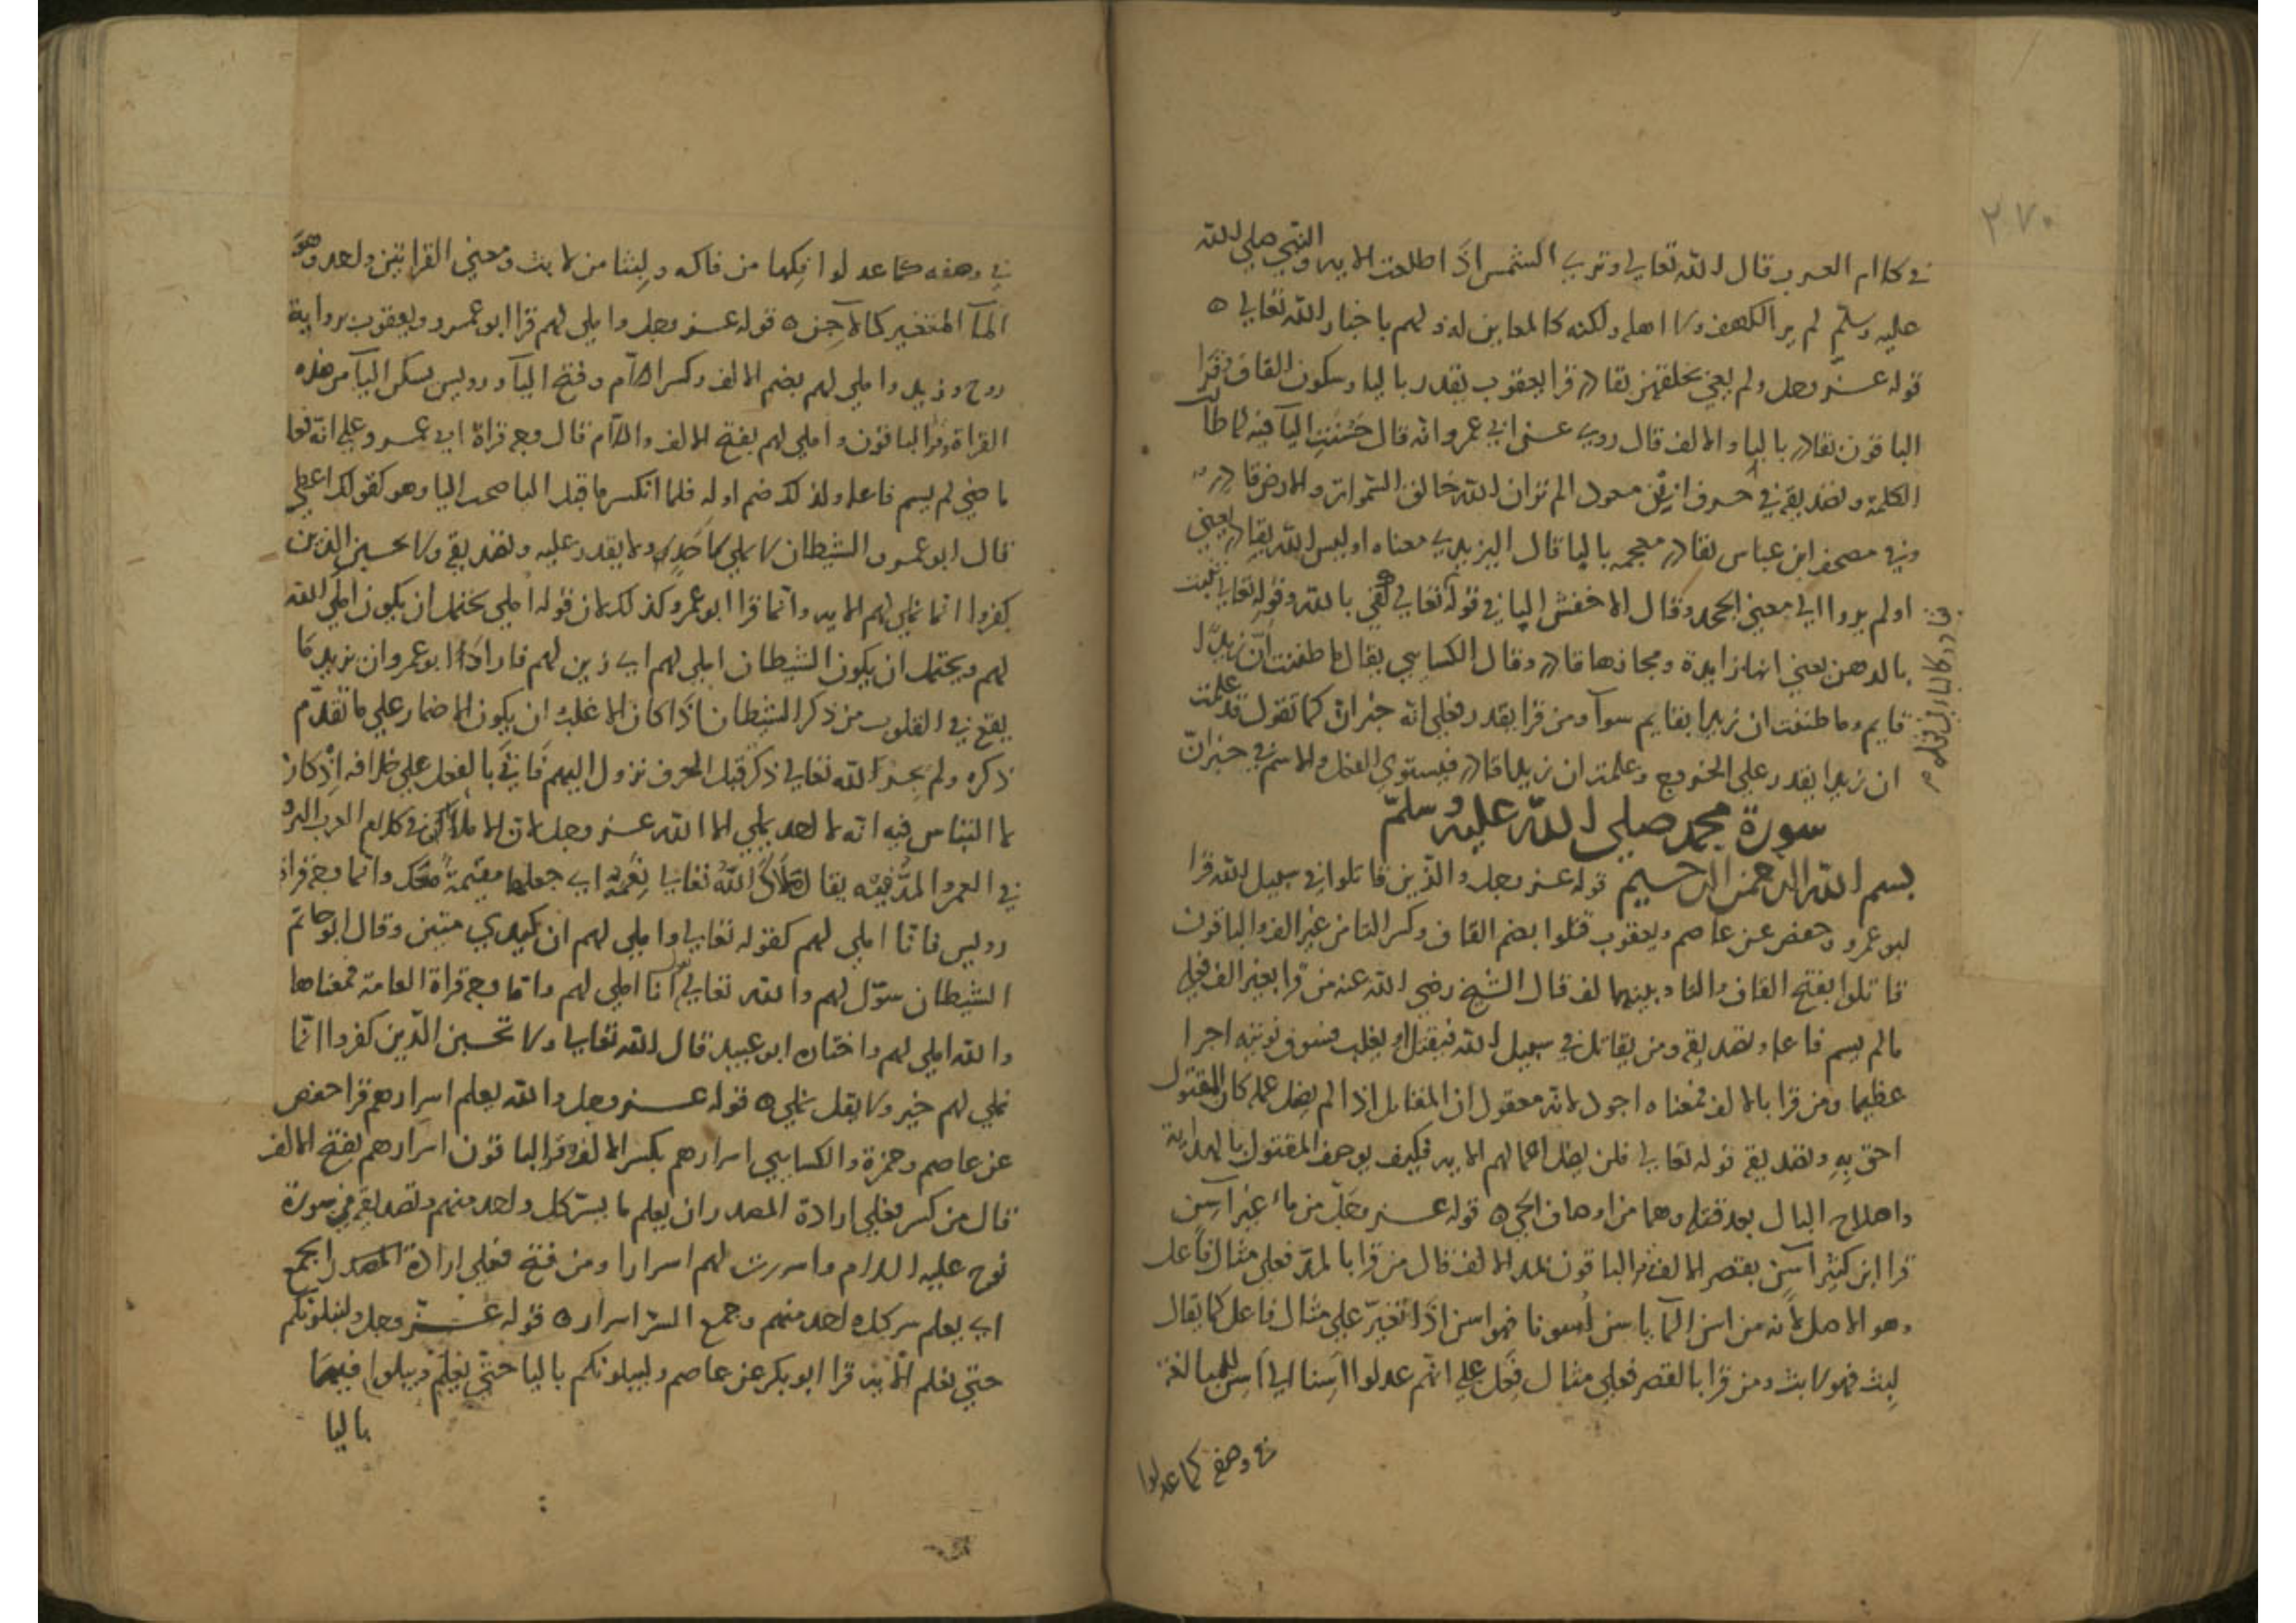 ٢٧٠
في كلام العرب قال الله تعالى وترى الشمس اذا طلعت الايه والنبي صلي الله
عليه وسلم لم ير الكهف ولا اهله ولكنه كالمعاين له ولهم باخبار الله تعالى ه
قوله عز وجل ولم يعي بخلقهن بقادر قرا يعقوب يقدر باليا وسكون القاف وقرا
الباقون بقادر بالبا والالف قال روي عن ابي عمرو انه قال حسنت البآ فيه لما طالت
الكلمة وتصديقه في حرف ابن مسعود الم تر ان الله خالق السموات والارض قادر
وفي مصحف ابن عباس بقادر معجمه بالبا قال اليزيدي معناه اوليس الله بقادر يعني
اولم يروا الي معني الجحد وقال الاخفش البا في قوله تعالى كفي بالله وقوله تعالى تنبت
بالدهن يعني انها زايدة ومجازها قادر وقال الكسايي يقال ما ظننت ان زيدا
قايم وما ظننت ان زيدا بقايم سوآ ومن قرا يقدر فعلي انه خبر ان كما تقول قد علمت
ان زيدا يقدر علي الخروج وعلمت ان زيدا قادر فيستوي الفعل والاسم في خبر ان
سورة محمد صلى الله عليه وسلم
بسم الله الرحمن الرحيم قوله عز وجل والذين قاتلوا في سبيل الله قرا
ابو عمرو وحفص عن عاصم ويعقوب قتلوا بضم القاف وكسر التا من غير الف والباقون
قاتلوا بفتح القاف والتا وبينهما الف قال الشيخ رضي الله عنه من قرا بغير الف فعلي
ما لم يسم فاعله وتصديقه ومن يقاتل في سبيل الله فيقتل او يغلب فسوف نوتيه اجرا
عظيما ومن قرا بالالف فمعناه اجود لانه معقول ان المقاتل اذا لم يضل عمله كان المقتول
احق به وتصديقه قوله تعالى فلن يضل اعمالهم الايه فكيف يوصف المقتول بالهداية
واصلاح البال بعد قتله وهما من اوصاف الحي ه قوله عز وجل من ماء غير آسن
قرا ابن كثير اسن بقصر الالف والباقون بمد الالف قال من قرا بالمد فعلي مثال فاعل
وهو الاصل لانه من اسن المآ ياسن اسونا فهو اسن اذا تغير علي مثال فاعل كما يقال
لبث فهو لابث ومن قرا بالقصر فعلي مثال فعل علي انهم عدلوا اسنا الي اسن للمبالغة
في وصفه كما عدلوا
في وصفه كما عدلوا فكها من فاكه ولبثا من لابث ومعني القراتين واحد وهو
المآ المتغير كالاجن ه قوله عز وجل واملي لهم قرا ابو عمرو ويعقوب برواية
روح وزيد واملي لهم بضم الالف وكسر اللام وفتح اليآ ورويس يسكن اليآ من هذه
القراة وقرا الباقون واملي لهم بفتح الالف واللام قال وجه قراة ابي عمرو علي انه فعل
ماضي لم يسم فاعله ولذلك ضم اوله فلما انكسر ما قبل اليا صحت اليا وهو كقولك اعطي
قال ابو عمرو الشيطان لا يملي لاحد ولا يقدر عليه وتصديقه ولا تحسبن الذين
كفروا انما نملي لهم الايه وانما قرا ابو عمرو كذلك لان قوله املي يحتمل ان يكون املي الله
لهم ويحتمل ان يكون الشيطان املي لهم اي زين لهم فاراد ابو عمرو ان يزيل ما
يقع في القلوب من ذكر الشيطان اذا كان الاغلب ان يكون الاضمار علي ما تقدم
ذكره ولم يجر الله تعالى ذكر قبل الحرف نزول اليهم فاتي بالفعل علي خلافه اذ كان
لا التباس فيه انه لا احد يملي الا الله عز وجل لان الاملآ في كلام العرب المد
في العمر والمد فيه يقال ملاك الله تعالى نعمة اي جعلها مقيمة معك وانما وجه قراة
رويس فانا املي لهم كقوله تعالى واملي لهم ان كيدي متين وقال ابو حاتم
الشيطان سول لهم والله تعالى يقول انا املي لهم واما وجه قراة العامة فمعناها
والله املي لهم واختاره ابو عبيد قال الله تعالى ولا تحسبن الذين كفروا انما
نملي لهم خير ولا يقل نملي ه قوله عز وجل والله يعلم اسرارهم قرا حفص
عن عاصم وحمزة والكسايي اسرارهم بكسر الالف وقرا الباقون اسرارهم بفتح الالف
قال من كسر فعلي ارادة المصدر ان يعلم ما يسر كل واحد منهم وتصديقه في سورة
نوح عليه السلام واسررت لهم اسرارا ومن فتح فعلي ارادة المصدر الجمع
اي يعلم سر كل احد منهم وجمع السر اسرار ه قوله عز وجل ولنبلونكم
حتي نعلم الايه قرا ابو بكر عن عاصم وليبلونكم باليا حتي يعلم ويبلوا فيهما
باليا